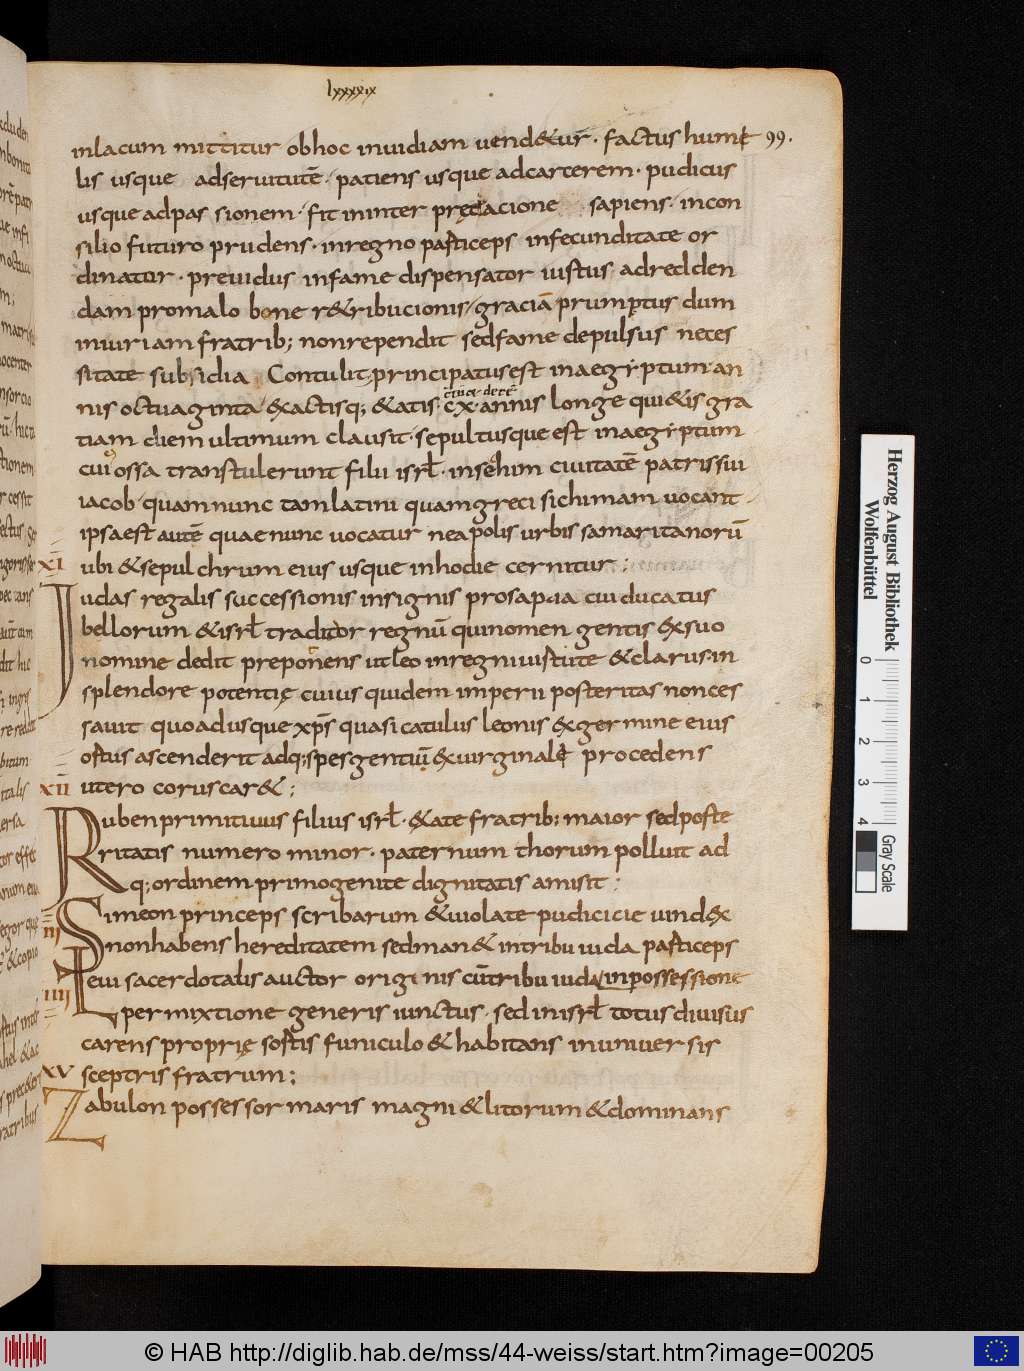 lxxxxix
inlacum mittitur obhoc inuidiam uend&ur̄· factus humi 99.
lis usque adseruitutē· patiens usque adcarcerem· pudicus
usque adpas sionem· fit ininter pręcacione sapiens· incon
silio futuro prudens· inregno particeps infecunditate or
dinator· preuidus infame dispensator iustus adredden
dam promalo bone r&ribucionis, graciā prumptus dum
iniuriam fratrib; nonrependit sedfame depulsus neces
sitate subsidia Contulit, principatus est inaegiptum· an
nis octuaginta &xactisq; &atis· cx· annis longe qui&is gra
tiam diem ultimum clausit· sepultusque est inaegiptum
cui ossa transtulerunt filii isrł· insehim ciuitatē patrissui
iacob· quamnunc tamlatini quamgreci sichimam uocant
ipsaest autē quae nunc uocatur neapolis urbis samaritanorū
xi ubi &sepulchrum eius usque inhodie cernitur :
Iudas regalis successionis insignis prosapia cui ducatus
bellorum &isrł traditor regnū quinomen gentis &xsuo
nomine dedit preponens ut leo inregni iustite &clarus· in
splendore potentię cuius quidem imperii posteritas nonces
sauit quoadusque xp̄s quasi catulus leonis &xgermine eius
ortus ascenderit adq; spes gentiū &xuirginale procedens
xii utero coruscar& ;
Ruben primitiuus filius isrł· &ate fratrib; maior sedposte
rritatis numero minor· paternum thorum polluit ad
q; ordinem primogenite dignitatis amisit :
Simeon princeps scribarum &uiolate pudicicie uind&x
nonhabens hereditatem sedman& intribu iuda particeps
Leui sacerdotalis auctor originis cūtribu iuda inpossessione
iiii permixtione generis iunctus· sed inisrł totus diuisus
carens proprię sortis funiculo &habitans inuniuersis
xv sceptris fratrum ;
Zabulon possessor maris magni &litorum &dominans
Herzog August Bibliothek
Wolfenbüttel
0 1 2 3 4
Gray Scale
© HAB http://diglib.hab.de/mss/44-weiss/start.htm?image=00205